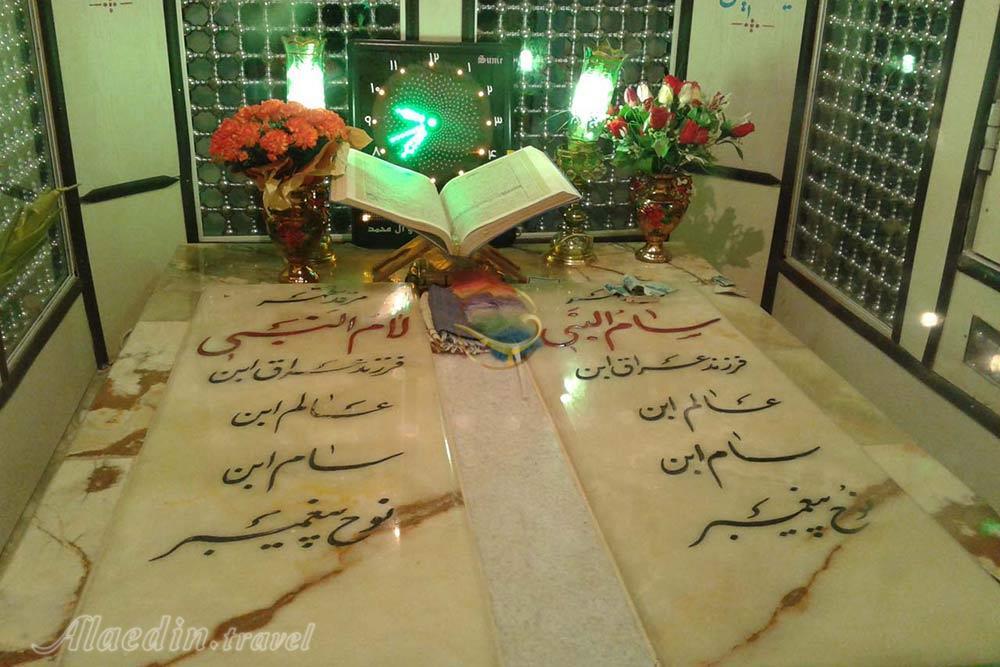 Sume
۱۲
۱
۲
۳
۴
۸
۹
۱۰
و آل محمد
مرقد
سام النبی
فرزند عراق ابن
عالم ابن
سام ابن
نوح پیغمبر
مرقد
لام النبی
فرزند عراق ابن
عالم ابن
سام ابن
نوح پیغمبر
Alaedin.travel